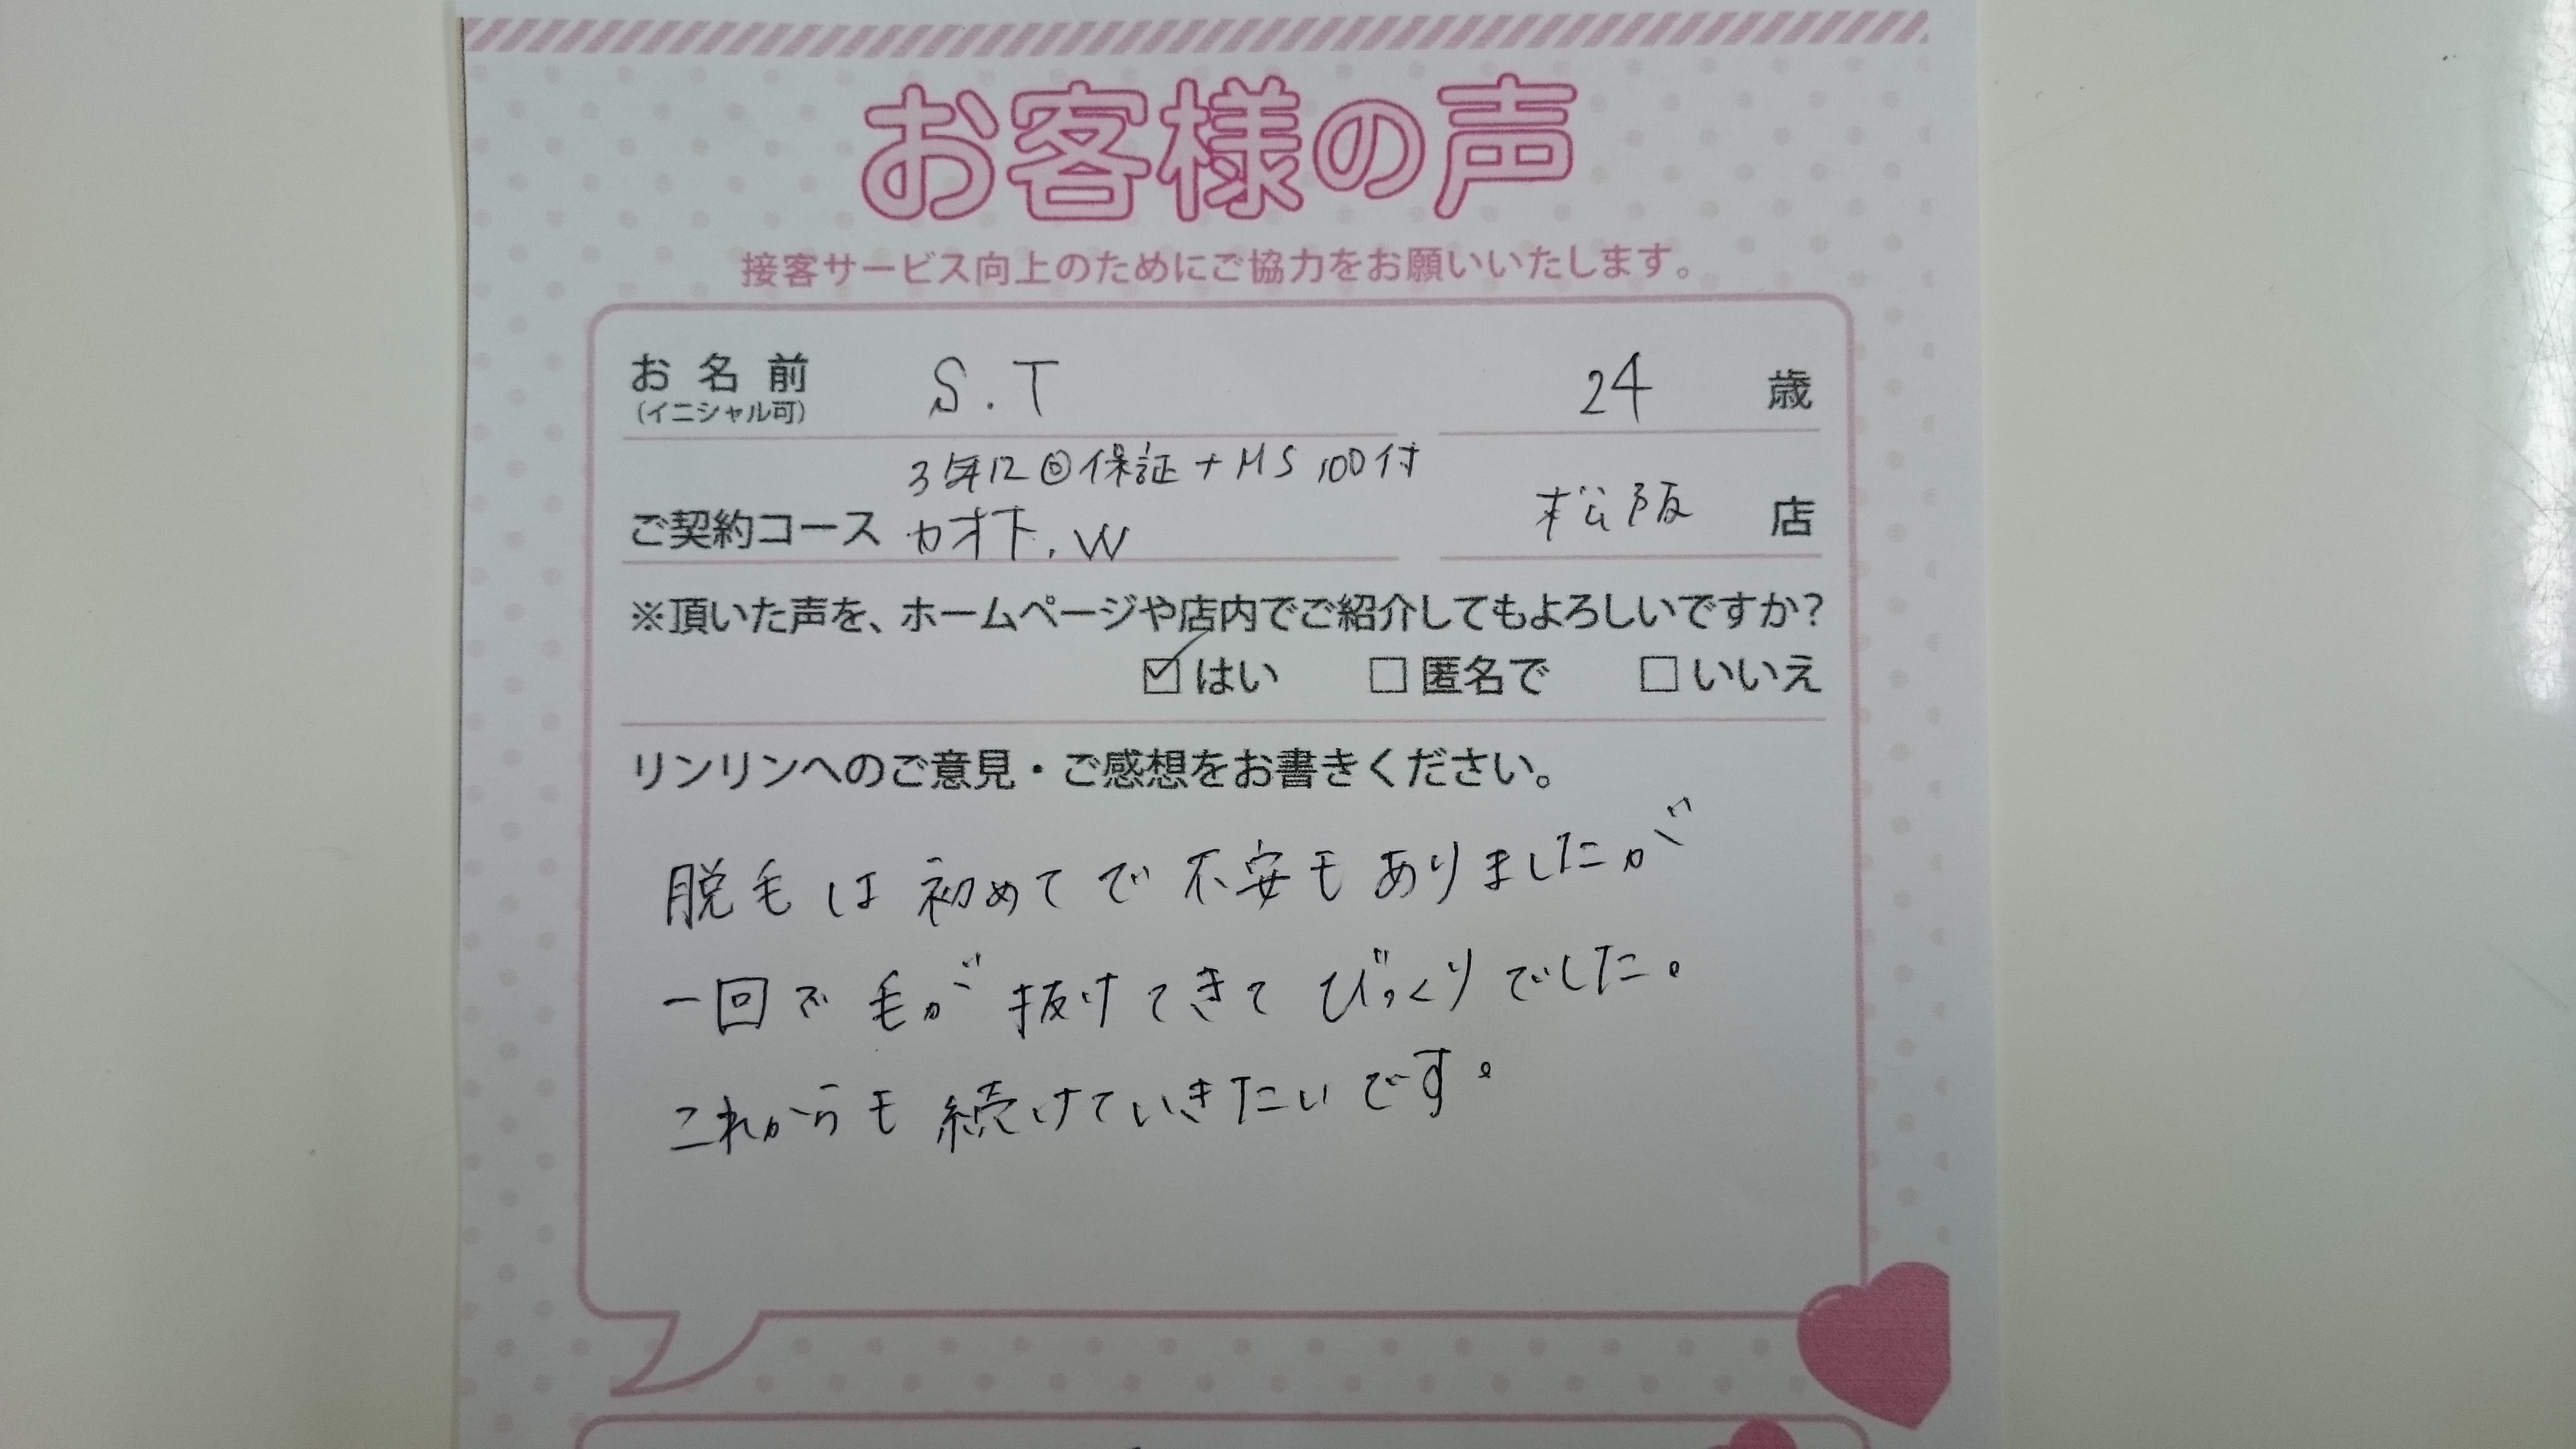 お客様の声
接客サービス向上のためにご協力をお願いいたします。
お名前 S.T 24 歳
(イニシャル可)
3年12回保証+HS 100付
ご契約コース カオ下.W 松阪 店
※頂いた声を、ホームページや店内でご紹介してもよろしいですか?
☑はい □匿名で □いいえ
リンリンへのご意見・ご感想をお書きください。
脱毛は初めてで不安もありましたが
一回で毛が抜けてきてびっくりでした。
これからも続けていきたいです。